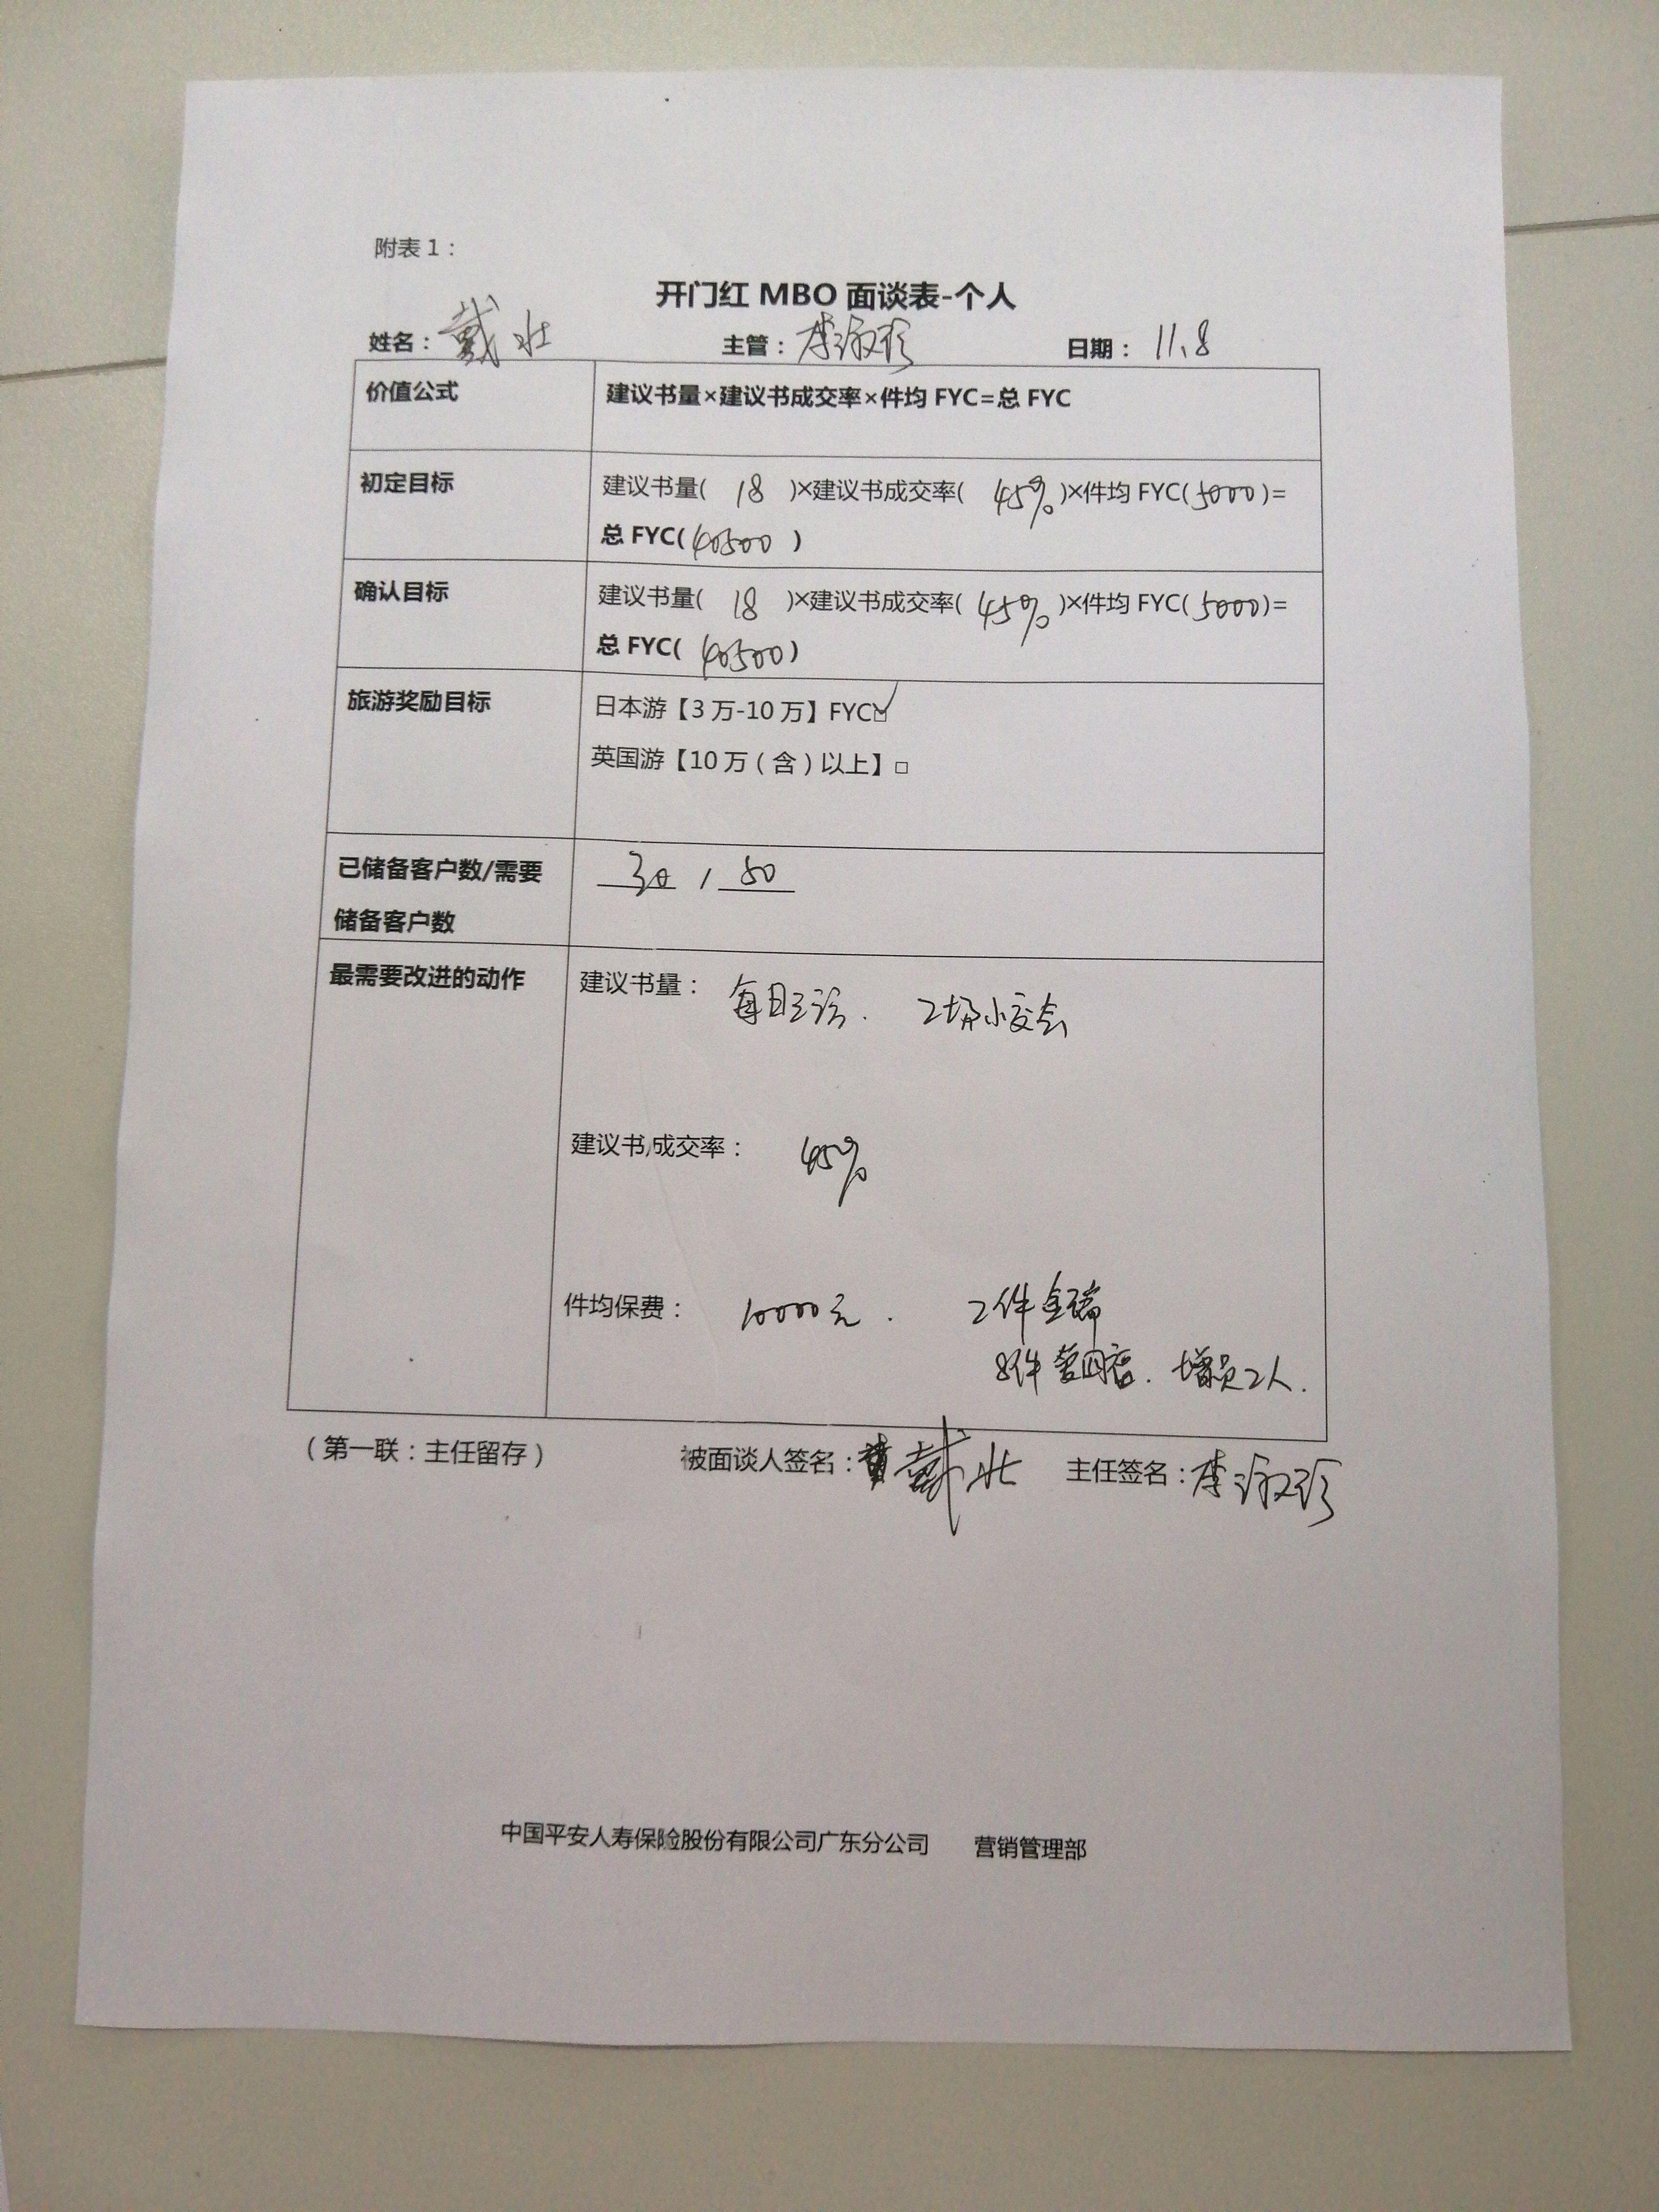 附表1：
开门红 MBO 面谈表-个人
姓名：戴 壮 主管：李淑珍 日期：11.8
价值公式 建议书量×建议书成交率×件均 FYC=总 FYC
初定目标 建议书量( 18 )×建议书成交率( 45% )×件均 FYC(5000)=
总 FYC(40500 )
确认目标 建议书量( 18 )×建议书成交率( 45% )×件均 FYC(5000)=
总 FYC( 40500)
旅游奖励目标 日本游【3 万-10 万】FYC☑
英国游【10 万（含）以上】□
已储备客户数/需要 30 / 50
储备客户数
最需要改进的动作 建议书量： 每日三访. 2场小交会
建议书成交率： 45%
件均保费： 10000元. 2件金瑞
8件 增员2人.
（第一联：主任留存） 被面谈人签名：戴壮 主任签名：李淑珍
中国平安人寿保险股份有限公司广东分公司 营销管理部